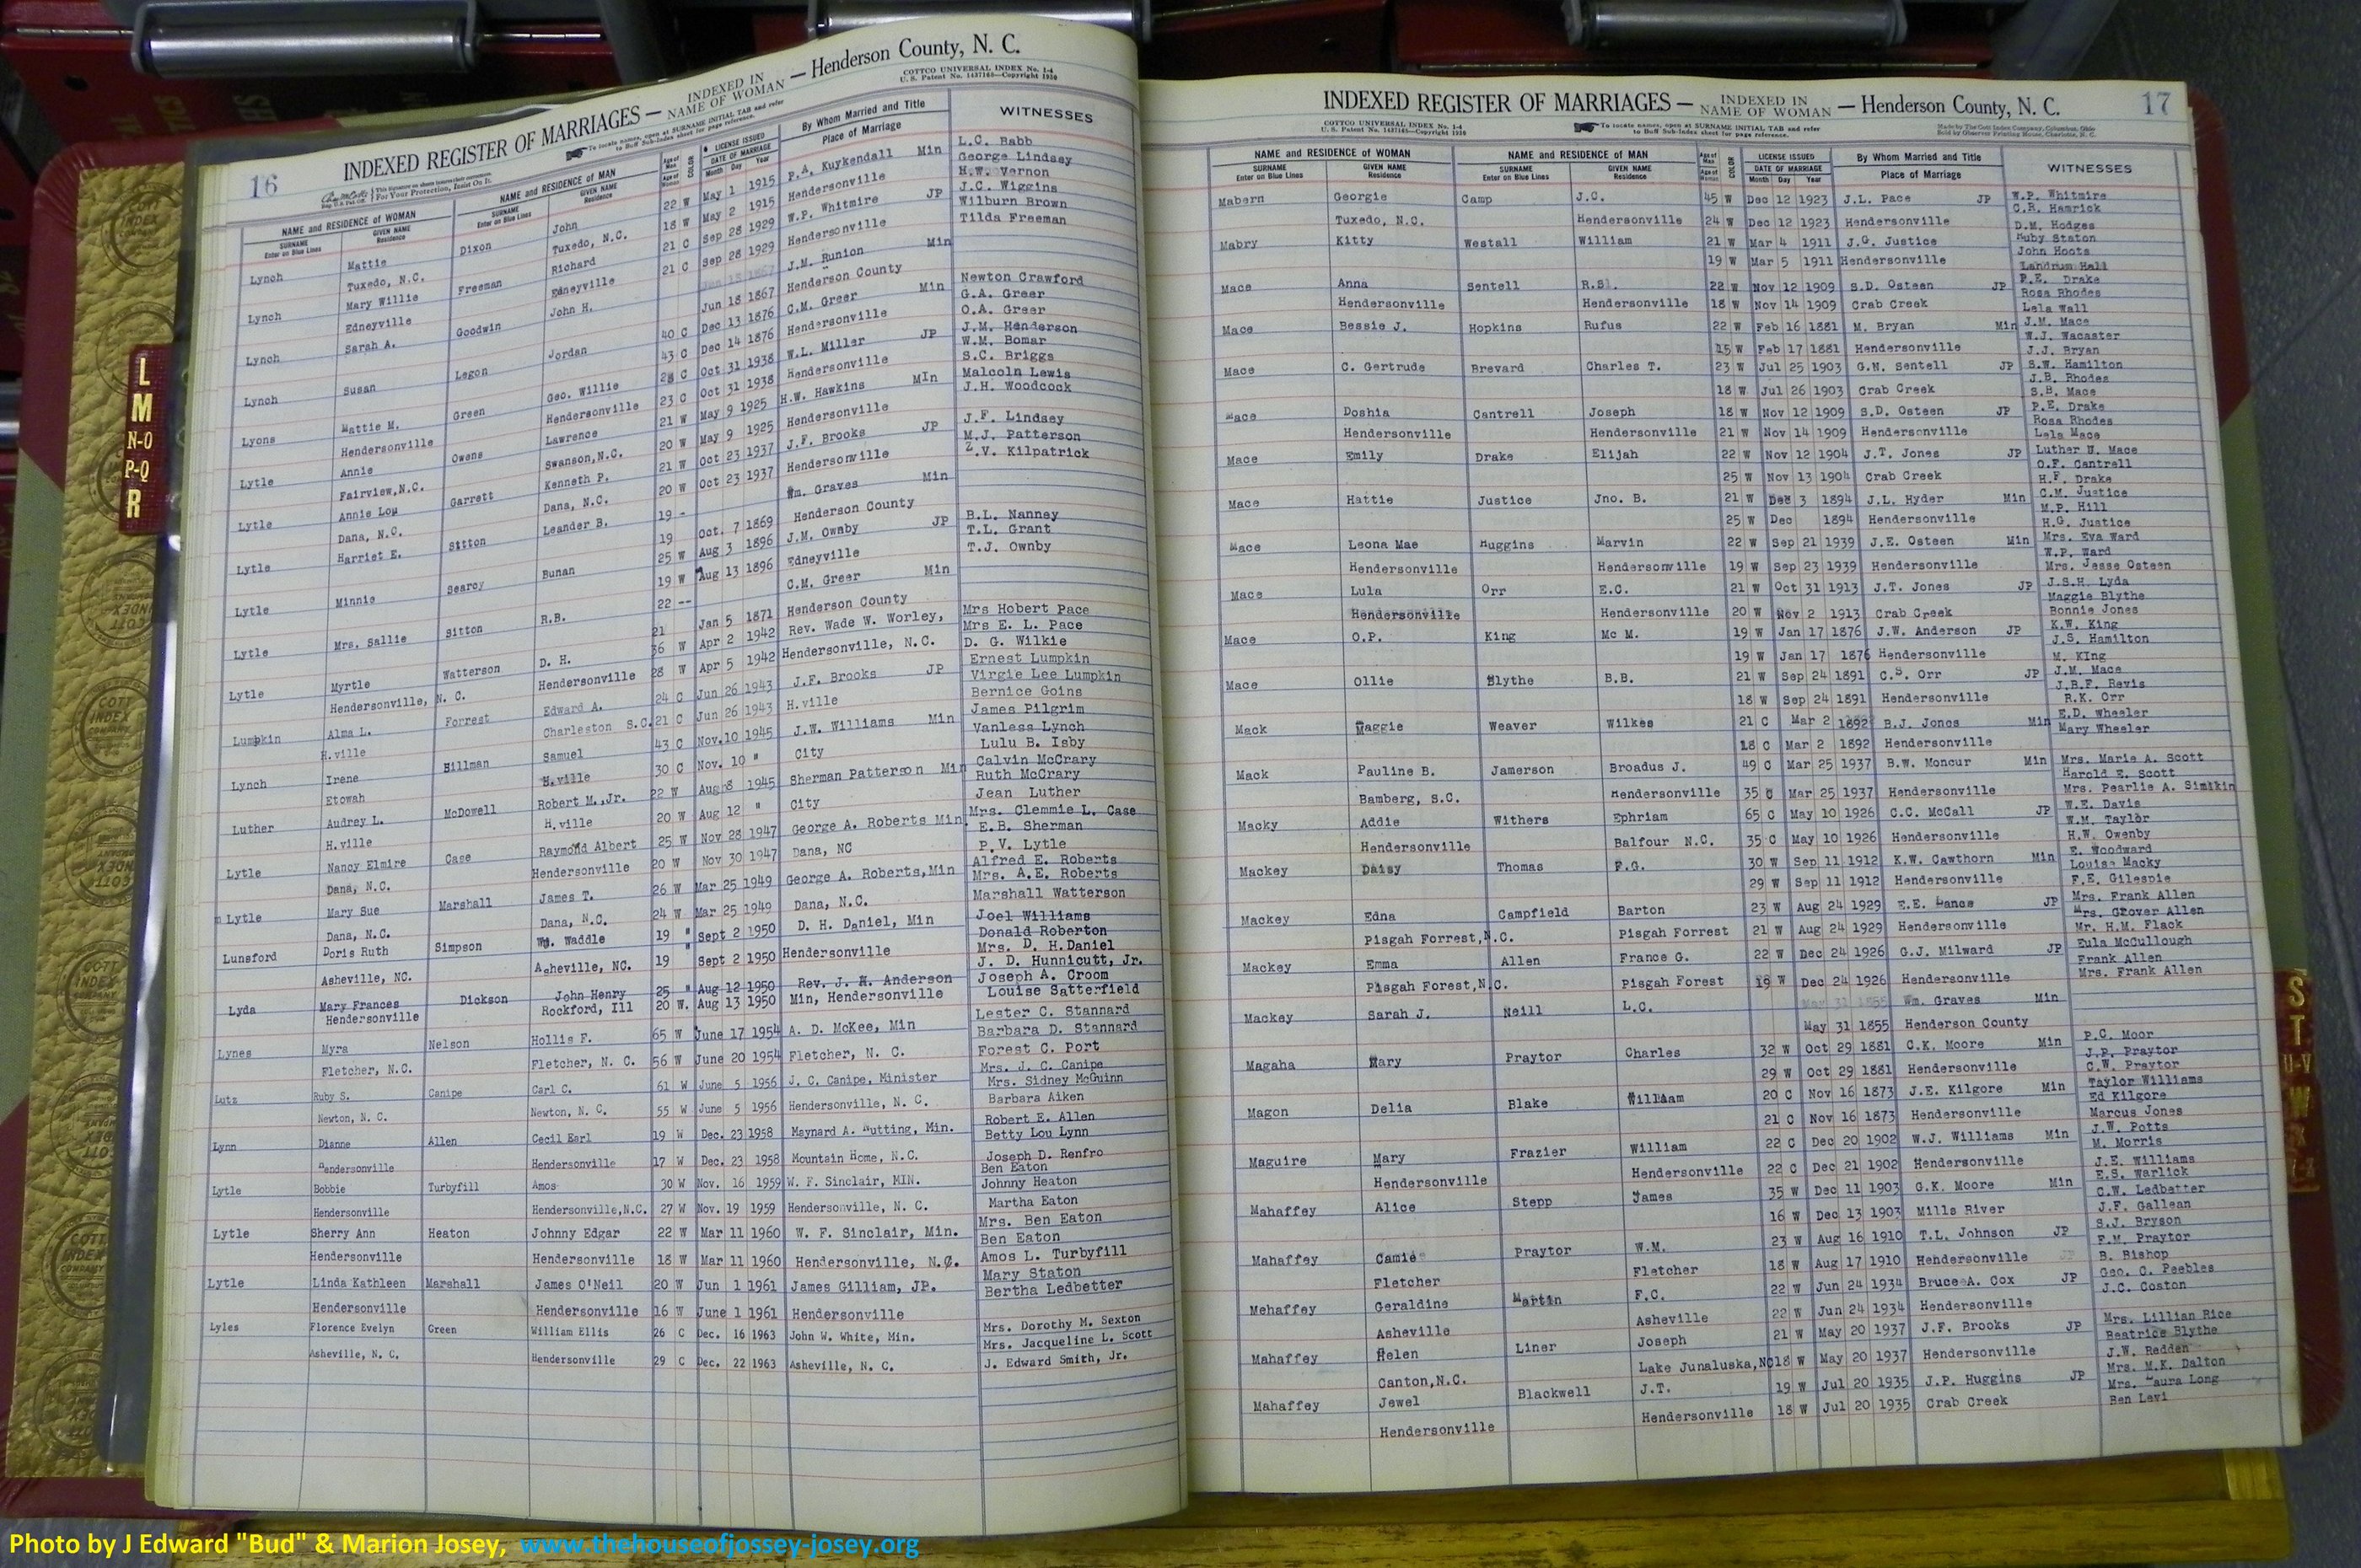 16
INDEXED REGISTER OF MARRIAGES — INDEXED IN NAME OF WOMAN — Henderson County, N. C.
COTTCO UNIVERSAL INDEX No. 1-4
U. S. Patent No. 1437163—Copyright 1930
To locate names, open at SURNAME INITIAL TAB and refer
to Buff Sub-Index sheet for page reference.
NAME and RESIDENCE of WOMAN NAME and RESIDENCE of MAN Age of Man Age of Woman COLOR LICENSE ISSUED DATE OF MARRIAGE By Whom Married and Title WITNESSES
SURNAME Enter on Blue Lines GIVEN NAME Residence SURNAME Enter on Blue Lines GIVEN NAME Residence Month Day Year Place of Marriage
Lynch Mattie Dixon John 22 W May 1 1915 P.A. Kuykendall Min L.C. Babb
George Lindsey
Tuxedo, N.C. Tuxedo, N.C. 18 W May 2 1915 Hendersonville H.W. Vernon
Lynch Mary Willie Freeman Richard 21 C Sep 28 1929 W.P. Whitmire JP J.C. Wiggins
Wilburn Brown
Edneyville Edneyville 21 C Sep 28 1929 Hendersonville Tilda Freeman
Lynch Sarah A. Goodwin John H. J.M. Runion Min
Jun 18 1867 Henderson County
Lynch Susan Legon Jordan 40 C Dec 13 1876 C.M. Greer Min Newton Crawford
G.A. Greer
43 C Dec 14 1876 Hendersonville O.A. Greer
Lyons Mattie M. Green Geo. Willie 28 C Oct 31 1938 W.L. Miller JP J.M. Henderson
W.M. Bomar
Hendersonville Hendersonville 23 C Oct 31 1938 Hendersonville S.C. Briggs
Lytle Annie Owens Lawrence 21 W May 9 1925 H.W. Hawkins MIn Malcoln Lewis
J.H. Woodcock
Fairview,N.C. Swanson,N.C. 20 W May 9 1925 Hendersonville
Lytle Annie Lou Garrett Kenneth P. 21 W Oct 23 1937 J.F. Brooks JP J.F. Lindsey
M.J. Patterson
Dana, N.C. Dana, N.C. 20 W Oct 23 1937 Hendersonville Z.V. Kilpatrick
Lytle Harriet E. Sitton Leander B. 19 - Wm. Graves Min
19 Oct. 7 1869 Henderson County
Lytle Minnie Searcy Bunan 25 W Aug 3 1896 J.M. Ownby JP B.L. Nanney
T.L. Grant
19 W Aug 13 1896 Edneyville T.J. Ownby
Lytle Mrs. Sallie Sitton R.B. 22 -- C.M. Greer Min
21 Jan 5 1871 Henderson County
Lytle Myrtle Watterson D. H. 36 W Apr 2 1942 Rev. Wade W. Worley, Mrs Hobert Pace
Mrs E. L. Pace
Hendersonville, N. C. Hendersonville 28 W Apr 5 1942 Hendersonville, N. C. D. G. Wilkie
Lumpkin Alma L. Forrest Edward A. 24 C Jun 26 1943 J.F. Brooks JP Ernest Lumpkin
Virgie Lee Lumpkin
H.ville Charleston S.C. 21 C Jun 26 1943 H.ville Bernice Goins
Lynch Irene Hillman Samuel 43 C Nov.10 1945 J.W. Williams Min James Pilgrim
Vanless Lynch
Etowah H.ville 30 C Nov. 10 " City Lulu B. Isby
Luther Audrey L. McDowell Robert M.,Jr. 22 W Aug 8 1945 Sherman Patterson Min Calvin McCrary
Ruth McCrary
H.ville H.ville 20 W Aug 12 " City Jean Luther
Lytle Nancy Elmire Case Raymond Albert 25 W Nov 28 1947 George A. Roberts Min Mrs. Clemmie L. Case
E.B. Sherman
Dana, N.C. Hendersonville 20 W Nov 30 1947 Dana, NC P.V. Lytle
Lytle Mary Sue Marshall James T. 26 W Mar 25 1949 George A. Roberts,Min Alfred E. Roberts
Mrs. A.E. Roberts
Dana, N.C. Dana, N.C. 24 W Mar 25 1949 Dana, N.C. Marshall Watterson
Lunsford Doris Ruth Simpson Wm. Waddle 19 " Sept 2 1950 D. H. Daniel, Min Joel Williams
Donald Roberton
Asheville, NC. Asheville, NC. 19 Sept 2 1950 Hendersonville Mrs. D. H.Daniel
Lyda Mary Frances Dickson John Henry 25 " Aug 12 1950 Rev. J. H. Anderson J. D. Hunnicutt, Jr.
Joseph A. Croom
Hendersonville Rockford, Ill 20 W. Aug 13 1950 Min, Hendersonville Louise Satterfield
Lynes Myra Nelson Hollis F. 65 W June 17 1954 A. D. McKee, Min Lester C. Stannard
Barbara D. Stannard
Fletcher, N.C. Fletcher, N. C. 56 W June 20 1954 Fletcher, N. C. Forest C. Port
Lutz Ruby S. Canipe Carl C. 61 W June 5 1956 J. C. Canipe, Minister Mrs. J. C. Canipe
Mrs. Sidney McGuinn
Newton, N. C. Newton, N. C. 55 W June 5 1956 Hendersonville, N. C. Barbara Aiken
Lynn Dianne Allen Cecil Earl 19 W Dec. 23 1958 Maynard A. Nutting, Min. Robert E. Allen
Betty Lou Lynn
Hendersonville Hendersonville 17 W Dec. 23 1958 Mountain Home, N.C. Joseph D. Renfro
Lytle Bobbie Turbyfill Amos 30 W Nov. 16 1959 W. F. Sinclair, MIN. Ben Eaton
Johnny Heaton
Hendersonville Hendersonville,N.C. 27 W Nov. 19 1959 Hendersonville, N. C. Martha Eaton
Lytle Sherry Ann Heaton Johnny Edgar 22 W Mar 11 1960 W. F. Sinclair, Min. Mrs. Ben Eaton
Ben Eaton
Hendersonville Hendersonville 18 W Mar 11 1960 Hendersonville, N.C. Amos L. Turbyfill
Lytle Linda Kathleen Marshall James O'Neil 20 W Jun 1 1961 James Gilliam, JP. Mary Staton
Bertha Ledbetter
Hendersonville Hendersonville 16 W June 1 1961 Hendersonville
Lyles Florence Evelyn Green William Ellis 26 C Dec. 16 1963 John W. White, Min. Mrs. Dorothy M. Sexton
Mrs. Jacqueline L. Scott
Asheville, N. C. Hendersonville 29 C Dec. 22 1963 Asheville, N. C. J. Edward Smith, Jr.
17
INDEXED REGISTER OF MARRIAGES — INDEXED IN NAME OF WOMAN — Henderson County, N. C.
COTTCO UNIVERSAL INDEX No. 1-4
U. S. Patent No. 1437163—Copyright 1930
To locate names, open at SURNAME INITIAL TAB and refer
to Buff Sub-Index sheet for page reference.
Made by The Cott Index Company, Columbus, Ohio
Sold by Observer Printing House, Charlotte, N. C.
NAME and RESIDENCE OF WOMAN NAME and RESIDENCE OF MAN Age of Man Age of Woman COLOR LICENSE ISSUED DATE OF MARRIAGE By Whom Married and Title WITNESSES
SURNAME Enter on Blue Lines GIVEN NAME Residence SURNAME Enter on Blue Lines GIVEN NAME Residence Month Day Year Place of Marriage
Mabern Georgie Camp J.C. 45 W Dec 12 1923 J.L. Pace JP W.P. Whitmire
C.R. Hamrick
Tuxedo, N.C. Hendersonville 24 W Dec 12 1923 Hendersonville D.M. Hodges
Mabry Kitty Westall William 21 W Mar 4 1911 J.G. Justice Ruby Staton
John Hoots
19 W Mar 5 1911 Hendersonville Landrum Hall
Mace Anna Sentell R.S. 22 W Nov 12 1909 S.D. Osteen JP P.E. Drake
Rosa Rhodes
Hendersonville Hendersonville 18 W Nov 14 1909 Crab Creek Lela Wall
Mace Bessie J. Hopkins Rufus 22 W Feb 16 1881 M. Bryan Min J.M. Mace
W.J. Wacaster
15 W Feb 17 1881 Hendersonville J.J. Bryan
Mace C. Gertrude Brevard Charles T. 23 W Jul 25 1903 G.N. Sentell JP S.W. Hamilton
J.B. Rhodes
18 W Jul 26 1903 Crab Creek S.B. Mace
Mace Doshia Cantrell Joseph 18 W Nov 12 1909 S.D. Osteen JP P.E. Drake
Rosa Rhodes
Hendersonville Hendersonville 21 W Nov 14 1909 Hendersonville Lela Mace
Mace Emily Drake Elijah 22 W Nov 12 1904 J.T. Jones JP Luther U. Mace
O.F. Cantrell
25 W Nov 13 1904 Crab Creek H.F. Drake
Mace Hattie Justice Jno. B. 21 W Dec 3 1894 J.L. Hyder Min C.M. Justice
M.P. Hill
25 W Dec 1894 Hendersonville H.G. Justice
Mace Leona Mae Huggins Marvin 22 W Sep 21 1939 J.E. Osteen Min Mrs. Eva Ward
W.P. Ward
Hendersonville Hendersonville 19 W Sep 23 1939 Hendersonville Mrs. Jesse Osteen
Mace Lula Orr E.C. 21 W Oct 31 1913 J.T. Jones JP J.S.H. Lyda
Maggie Blythe
Hendersonville Hendersonville 20 W Nov 2 1913 Crab Creek Bonnie Jones
Mace O.P. King Mc M. 19 W Jan 17 1876 J.W. Anderson JP K.W. King
J.S. Hamilton
19 W Jan 17 1876 Hendersonville M. KIng
Mace Ollie Blythe B.B. 21 W Sep 24 1891 C.S. Orr JP J.M. Mace
J.B.F. Revis
18 W Sep 24 1891 Hendersonville R.K. Orr
Mack Maggie Weaver Wilkes 21 C Mar 2 1892 B.J. Jones Min E.D. Wheeler
Mary Wheeler
18 C Mar 2 1892 Hendersonville
Mack Pauline B. Jamerson Broadus J. 49 C Mar 25 1937 B.W. Moncur Min Mrs. Marie A. Scott
Harold E. Scott
Bamberg, S.C. Hendersonville 35 C Mar 25 1937 Hendersonville Mrs. Pearlie A. Simikin
Macky Addie Withers Ephriam 65 C May 10 1926 C.C. McCall JP W.E. Davis
W.M. Taylor
Hendersonville Balfour N.C. 35 C May 10 1926 Hendersonville H.W. Owenby
Mackey Daisy Thomas F.G. 30 W Sep 11 1912 K.W. Cawthorn Min E. Woodward
Louise Macky
29 W Sep 11 1912 Hendersonville F.E. Gilespie
Mackey Edna Campfield Barton 23 W Aug 24 1929 E.E. Lance JP Mrs. Frank Allen
Mrs. Grover Allen
Pisgah Forrest,N.C. Pisgah Forrest 21 W Aug 24 1929 Hendersonville Mr. H.M. Flack
Mackey Emma Allen France G. 22 W Dec 24 1926 G.J. Milward JP Eula McCullough
Frank Allen
Pisgah Forest,N.C. Pisgah Forest 19 W Dec 24 1926 Hendersonville Mrs. Frank Allen
Mackey Sarah J. Neill L.C. May 31 1855 Wm. Graves Min
May 31 1855 Henderson County
Magaha Mary Praytor Charles 32 W Oct 29 1881 C.K. Moore Min P.C. Moor
J.P. Praytor
29 W Oct 29 1881 Hendersonville C.W. Praytor
Magon Delia Blake William 20 C Nov 16 1873 J.E. Kilgore Min Taylor Williams
Ed Kilgore
21 C Nov 16 1873 Hendersonville Marcus Jones
Maguire Mary Frazier William 22 C Dec 20 1902 W.J. Williams Min J.W. Potts
M. Morris
Hendersonville Hendersonville 22 C Dec 21 1902 Hendersonville J.E. Williams
Mahaffey Alice Stepp James 35 W Dec 11 1903 G.K. Moore Min E.S. Warlick
C.W. Ledbetter
16 W Dec 13 1903 Mills River J.F. Gallean
Mahaffey Camie Praytor W.M. 23 W Aug 16 1910 T.L. Johnson JP S.J. Bryson
F.M. Praytor
Fletcher Fletcher 18 W Aug 17 1910 Hendersonville B. Bishop
Mehaffey Geraldine Martin F.C. 22 W Jun 24 1934 Bruce A. Cox JP Geo. C. Peebles
J.C. Coston
Asheville Asheville 22 W Jun 24 1934 Hendersonville
Mahaffey Helen Liner Joseph 21 W May 20 1937 J.F. Brooks JP Mrs. Lillian Rice
Beatrice Blythe
Canton,N.C. Lake Junaluska,NC 18 W May 20 1937 Hendersonville J.W. Redden
Mahaffey Jewel Blackwell J.T. 19 W Jul 20 1935 J.P. Huggins JP Mrs. M.K. Dalton
Mrs. Laura Long
Hendersonville Hendersonville 18 W Jul 20 1935 Crab Creek Ben Levi
L
M
N-O
P-Q
R
S
T
U-V
W
Photo by J Edward "Bud" & Marion Josey, www.thehouseofjossey-josey.org